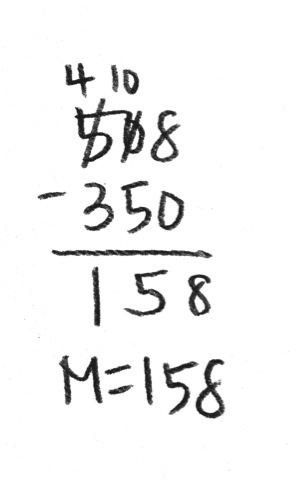 4 10
508
- 350
158
M=158